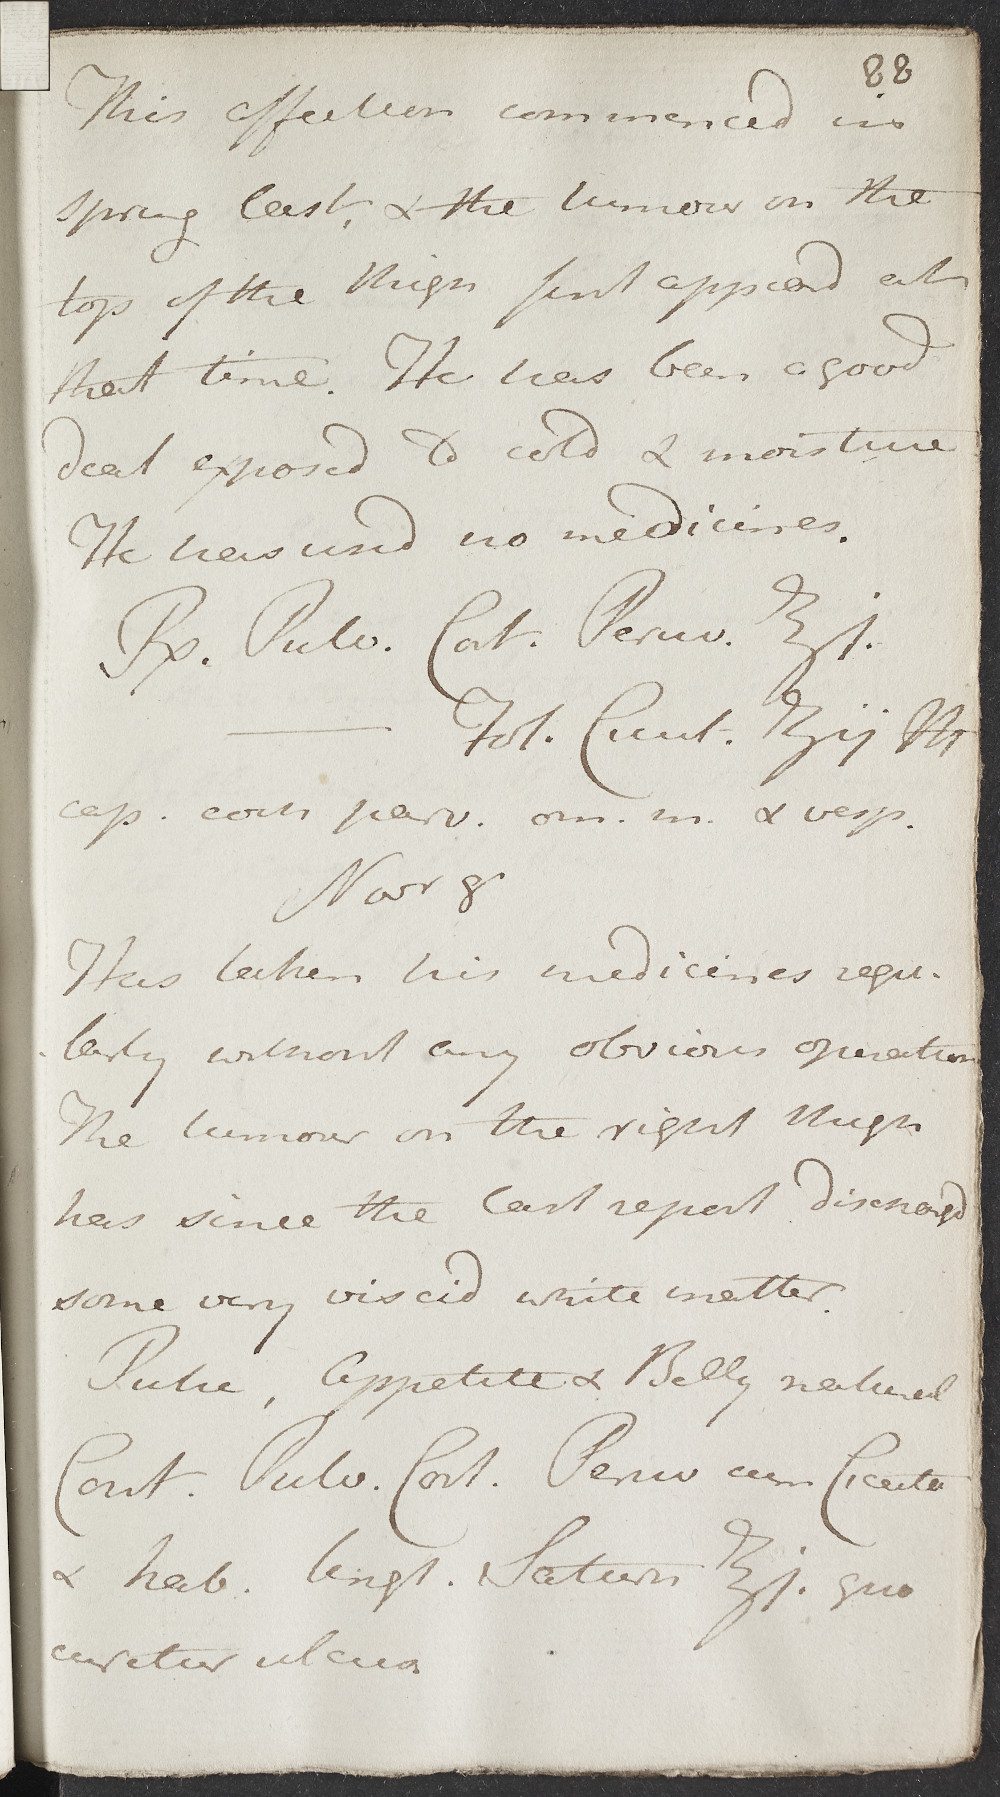 88
This affection commenced in
spring last, & the tumour on the
top of the thigh first appeard at
that time. He has been a good
deal exposed to cold & moisture
He has used no medicines.
Rx. Pulv. Cort. Peruv. ℥j.
—— Fol. Cicut. ℥ij M
cap. coch parv. om. m. & vesp.
Novr 8
Has taken his medicines regu-
larly without any obvious operation
The tumour on the right thigh
has since the last report dischargd
some very viscid white matter.
Pulse, appetite & Belly natural
Cont. Pulv. Cort. Peruv cum Cicuta
& hab. Ungt. Saturn ℥j. quo
curetur ulcus